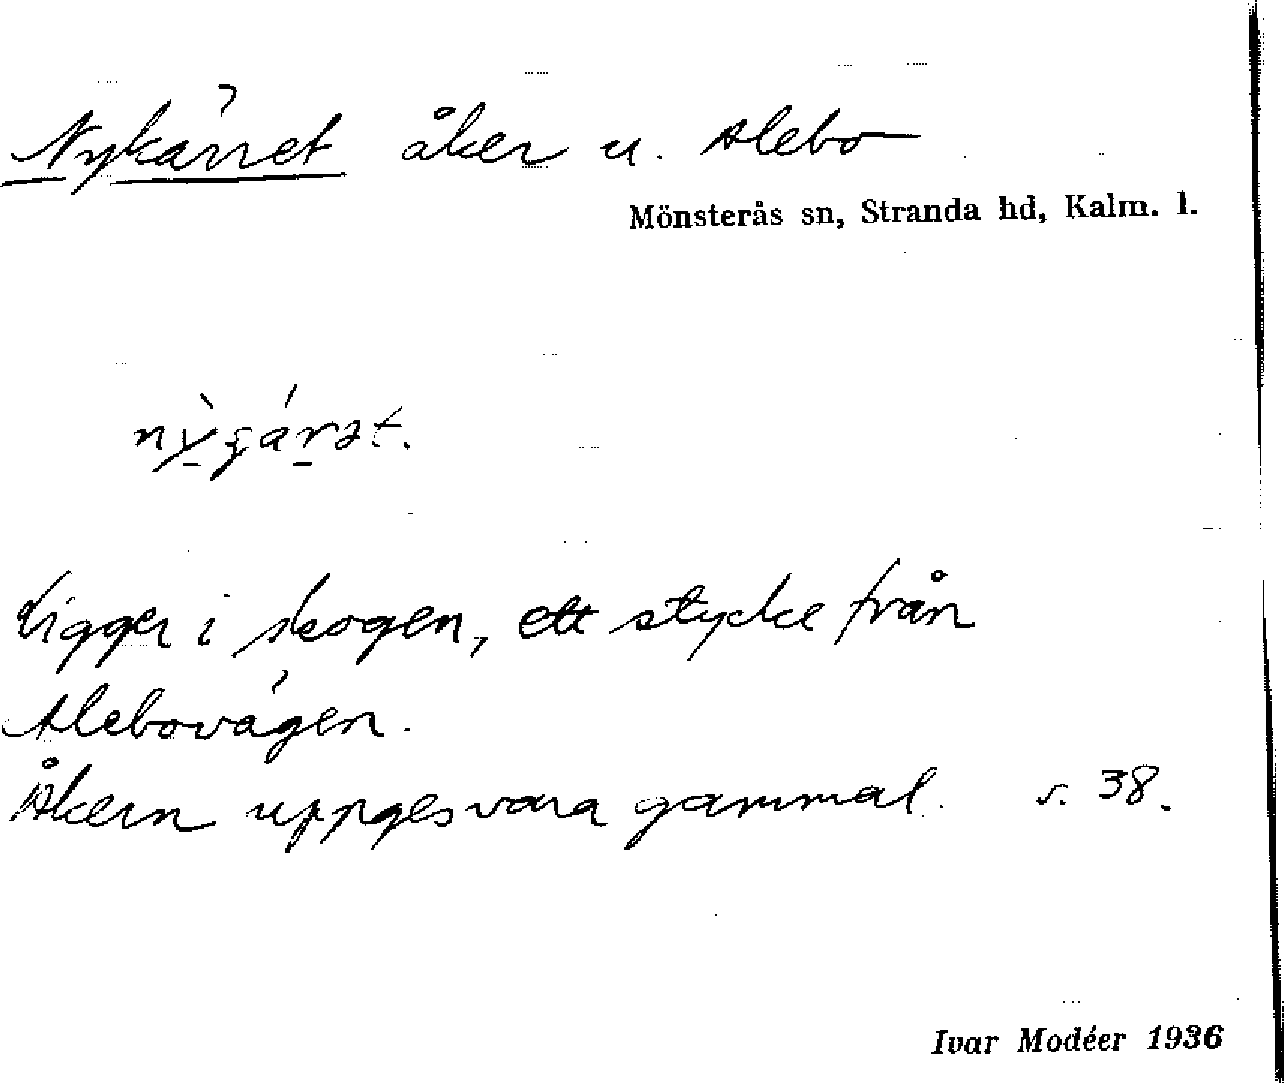 Nykärret åker u. Alebo
Mönsterås sn, Stranda hd, Kalm. l.
Ligger i skogen, ett stycke från
Alebovägen.
Åkern uppges vara gammal. s. 38.
Ivar Modéer 1936